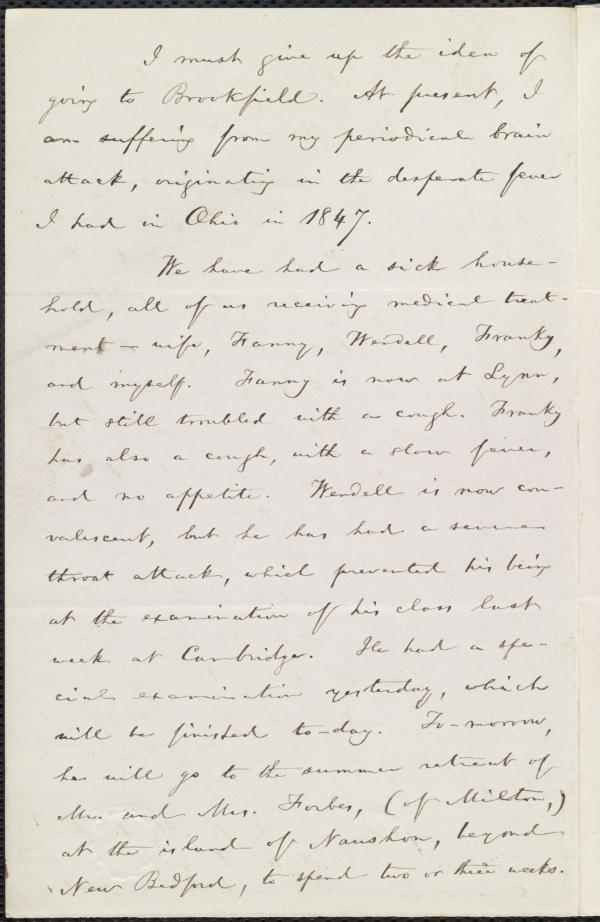 I must give up the idea of
going to Brookfield. At present, I
am suffering from my periodical brain
attack, originating in the desperate fever
I had in Ohio in 1847.
We have had a sick house-
hold, all of us receiving medical treat-
ment — wife, Fanny, Wendell, Franky,
and myself. Fanny is now at Lynn,
but still troubled with a cough. Franky
has also a cough, with a slow fever,
and no appetite. Wendell is now con-
valescent, but he has had a severe
throat attack, which prevented his being
at the examination of his class last
week at Cambridge. He had a spe-
cial examination yesterday, which
will be finished to-day. To-morrow,
he will go to the summer retreat of
Mr. and Mrs. Forbes, (of Milton,)
at the island of Naushon, beyond
New Bedford, to spend two or three weeks.